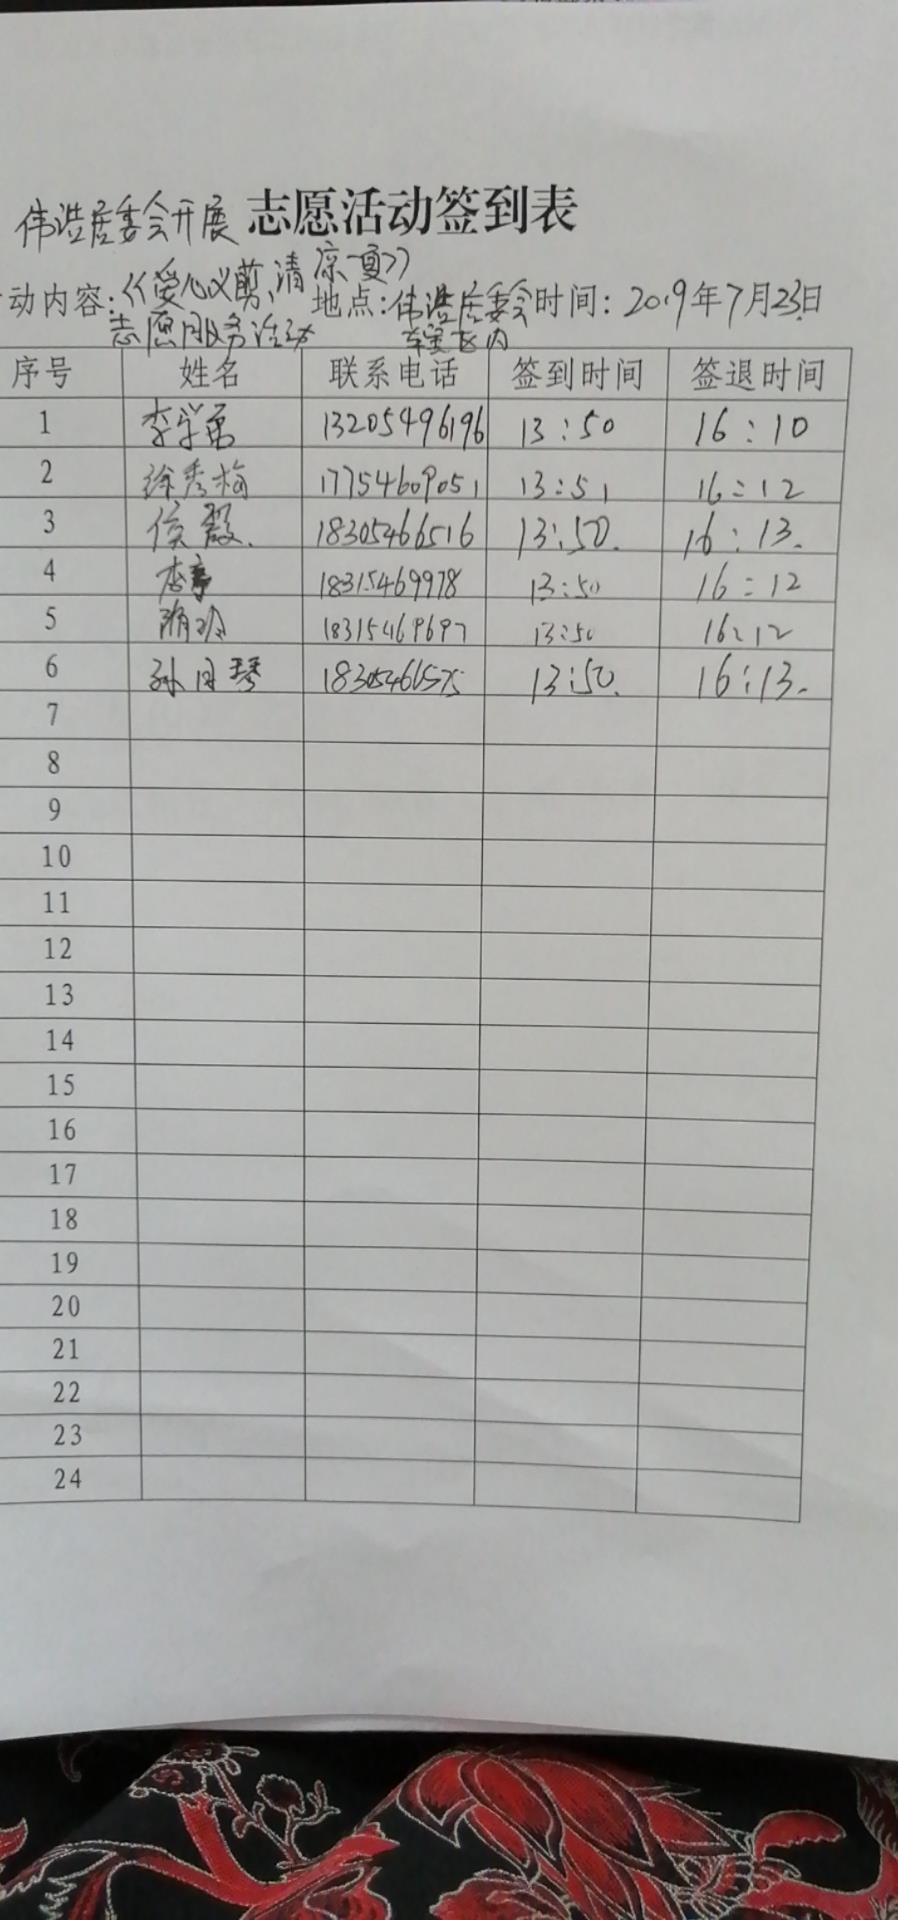 伟浩居委会开展 志愿活动签到表
动内容:《爱心义剪、清凉一夏》 地点:伟浩居委会 时间: 2019年7月23日
志愿服务活动 辖区内
序号 姓名 联系电话 签到时间 签退时间
1 李学勇 13205496196 13:50 16:10
2 徐秀梅 17754609051 13:51 16:12
3 侯毅. 18305466516 13:50. 16:13.
4 18315469978 13:50 16:12
5 隋玲 18315469697 13:50 16:12
6 孙月琴 18305466575 13:50. 16:13.
7
8
9
10
11
12
13
14
15
16
17
18
19
20
21
22
23
24